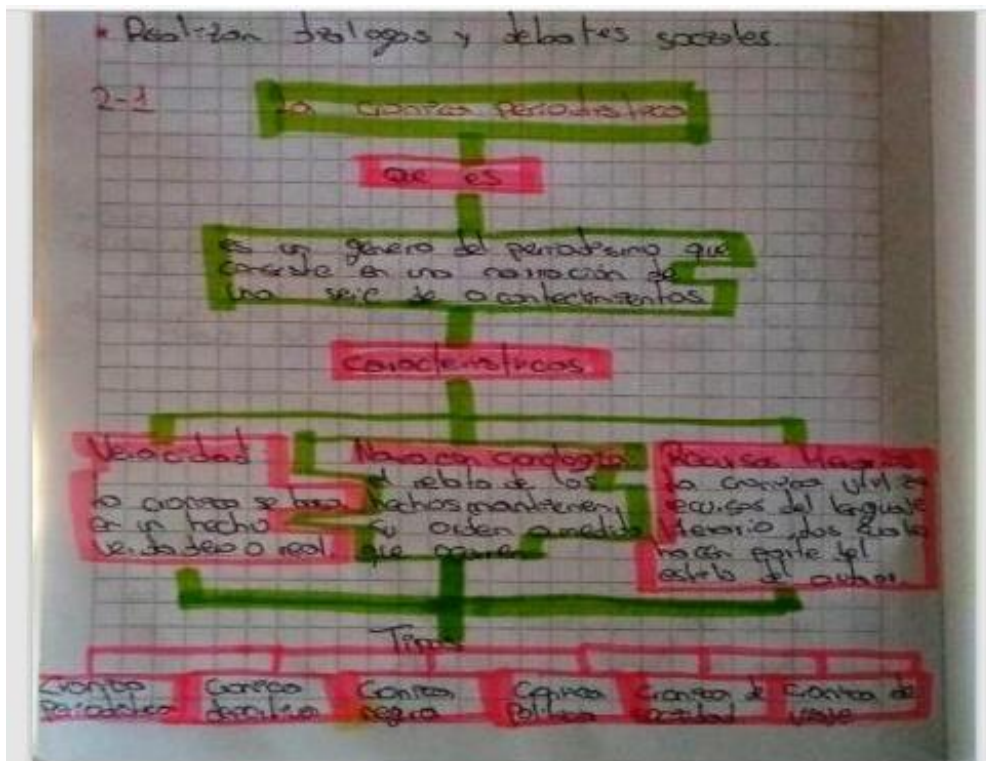 • Realizan dialogos y debates sociales.
2-1
La Cronica Periodistica
que es
es un género del periodismo que
consiste en una narración de
una serie de acontecimientos
Caracteristicas
Veracidad
la cronica se basa
en un hecho
verdadero o real.
Narracion cronologica
el relato de los
hechos mantienen
su orden a medida
que ocurren
Recursos literarios
la cronica utiliza
recursos del lenguaje
literario, los cuales
hacen parte del
estilo del autor.
Tipos
Cronica
Periodistica
Cronica
Cronica
negra
Cronica
Politica
Cronica de
sociedad
Cronica de
viaje